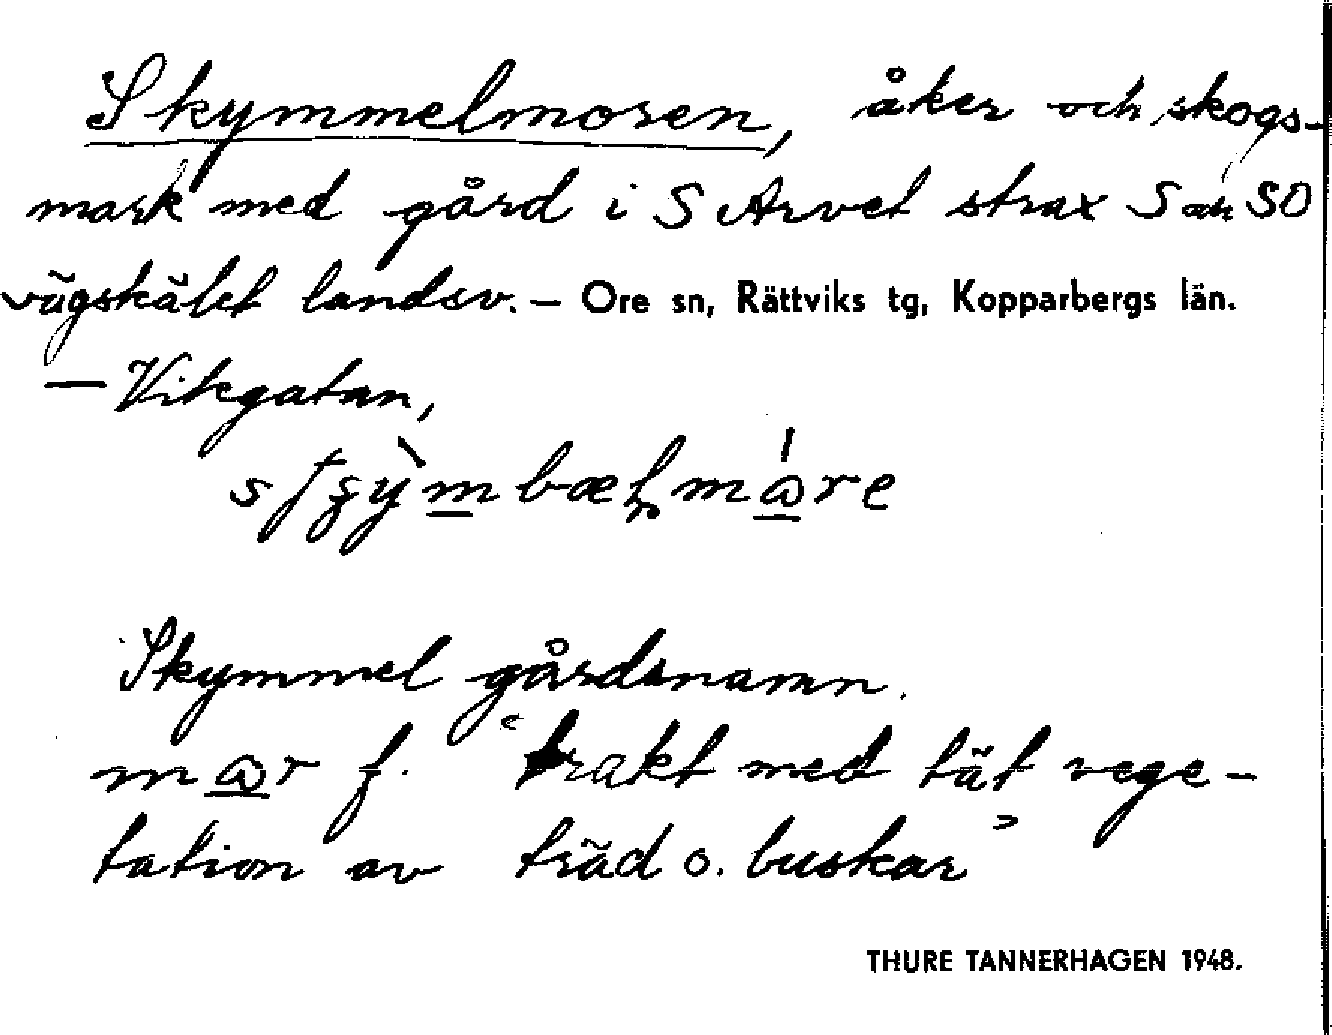 Skymmelmoren, åker och skogs-
mark med gård i S Arvet strax S och SO
vägskälet landsv. – Ore sn, Rättviks tg, Kopparbergs län.
— Vikgatan,
Skymmel gårdsnamn.
f. "trakt med tät vege-
tation av träd o. buskar"
THURE TANNERHAGEN 1948.